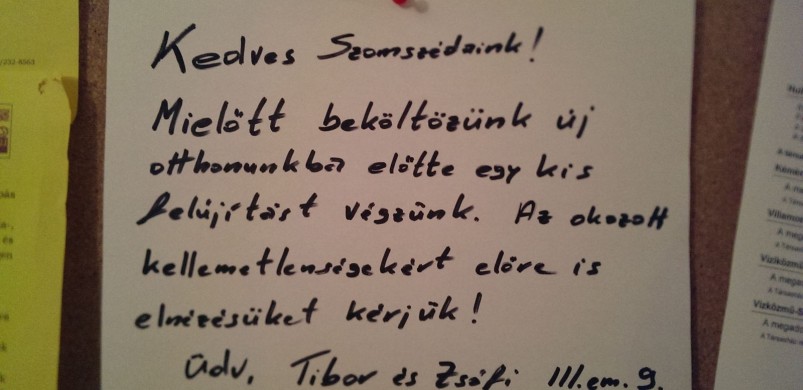 Kedves Szomszédaink!
Mielőtt beköltözünk új
otthonunkba előtte egy kis
felújítást végzünk. Az okozott
kellemetlenségekért előre is
elnézésüket kérjük!
Üdv. Tibor és Zsófi III.em.9.